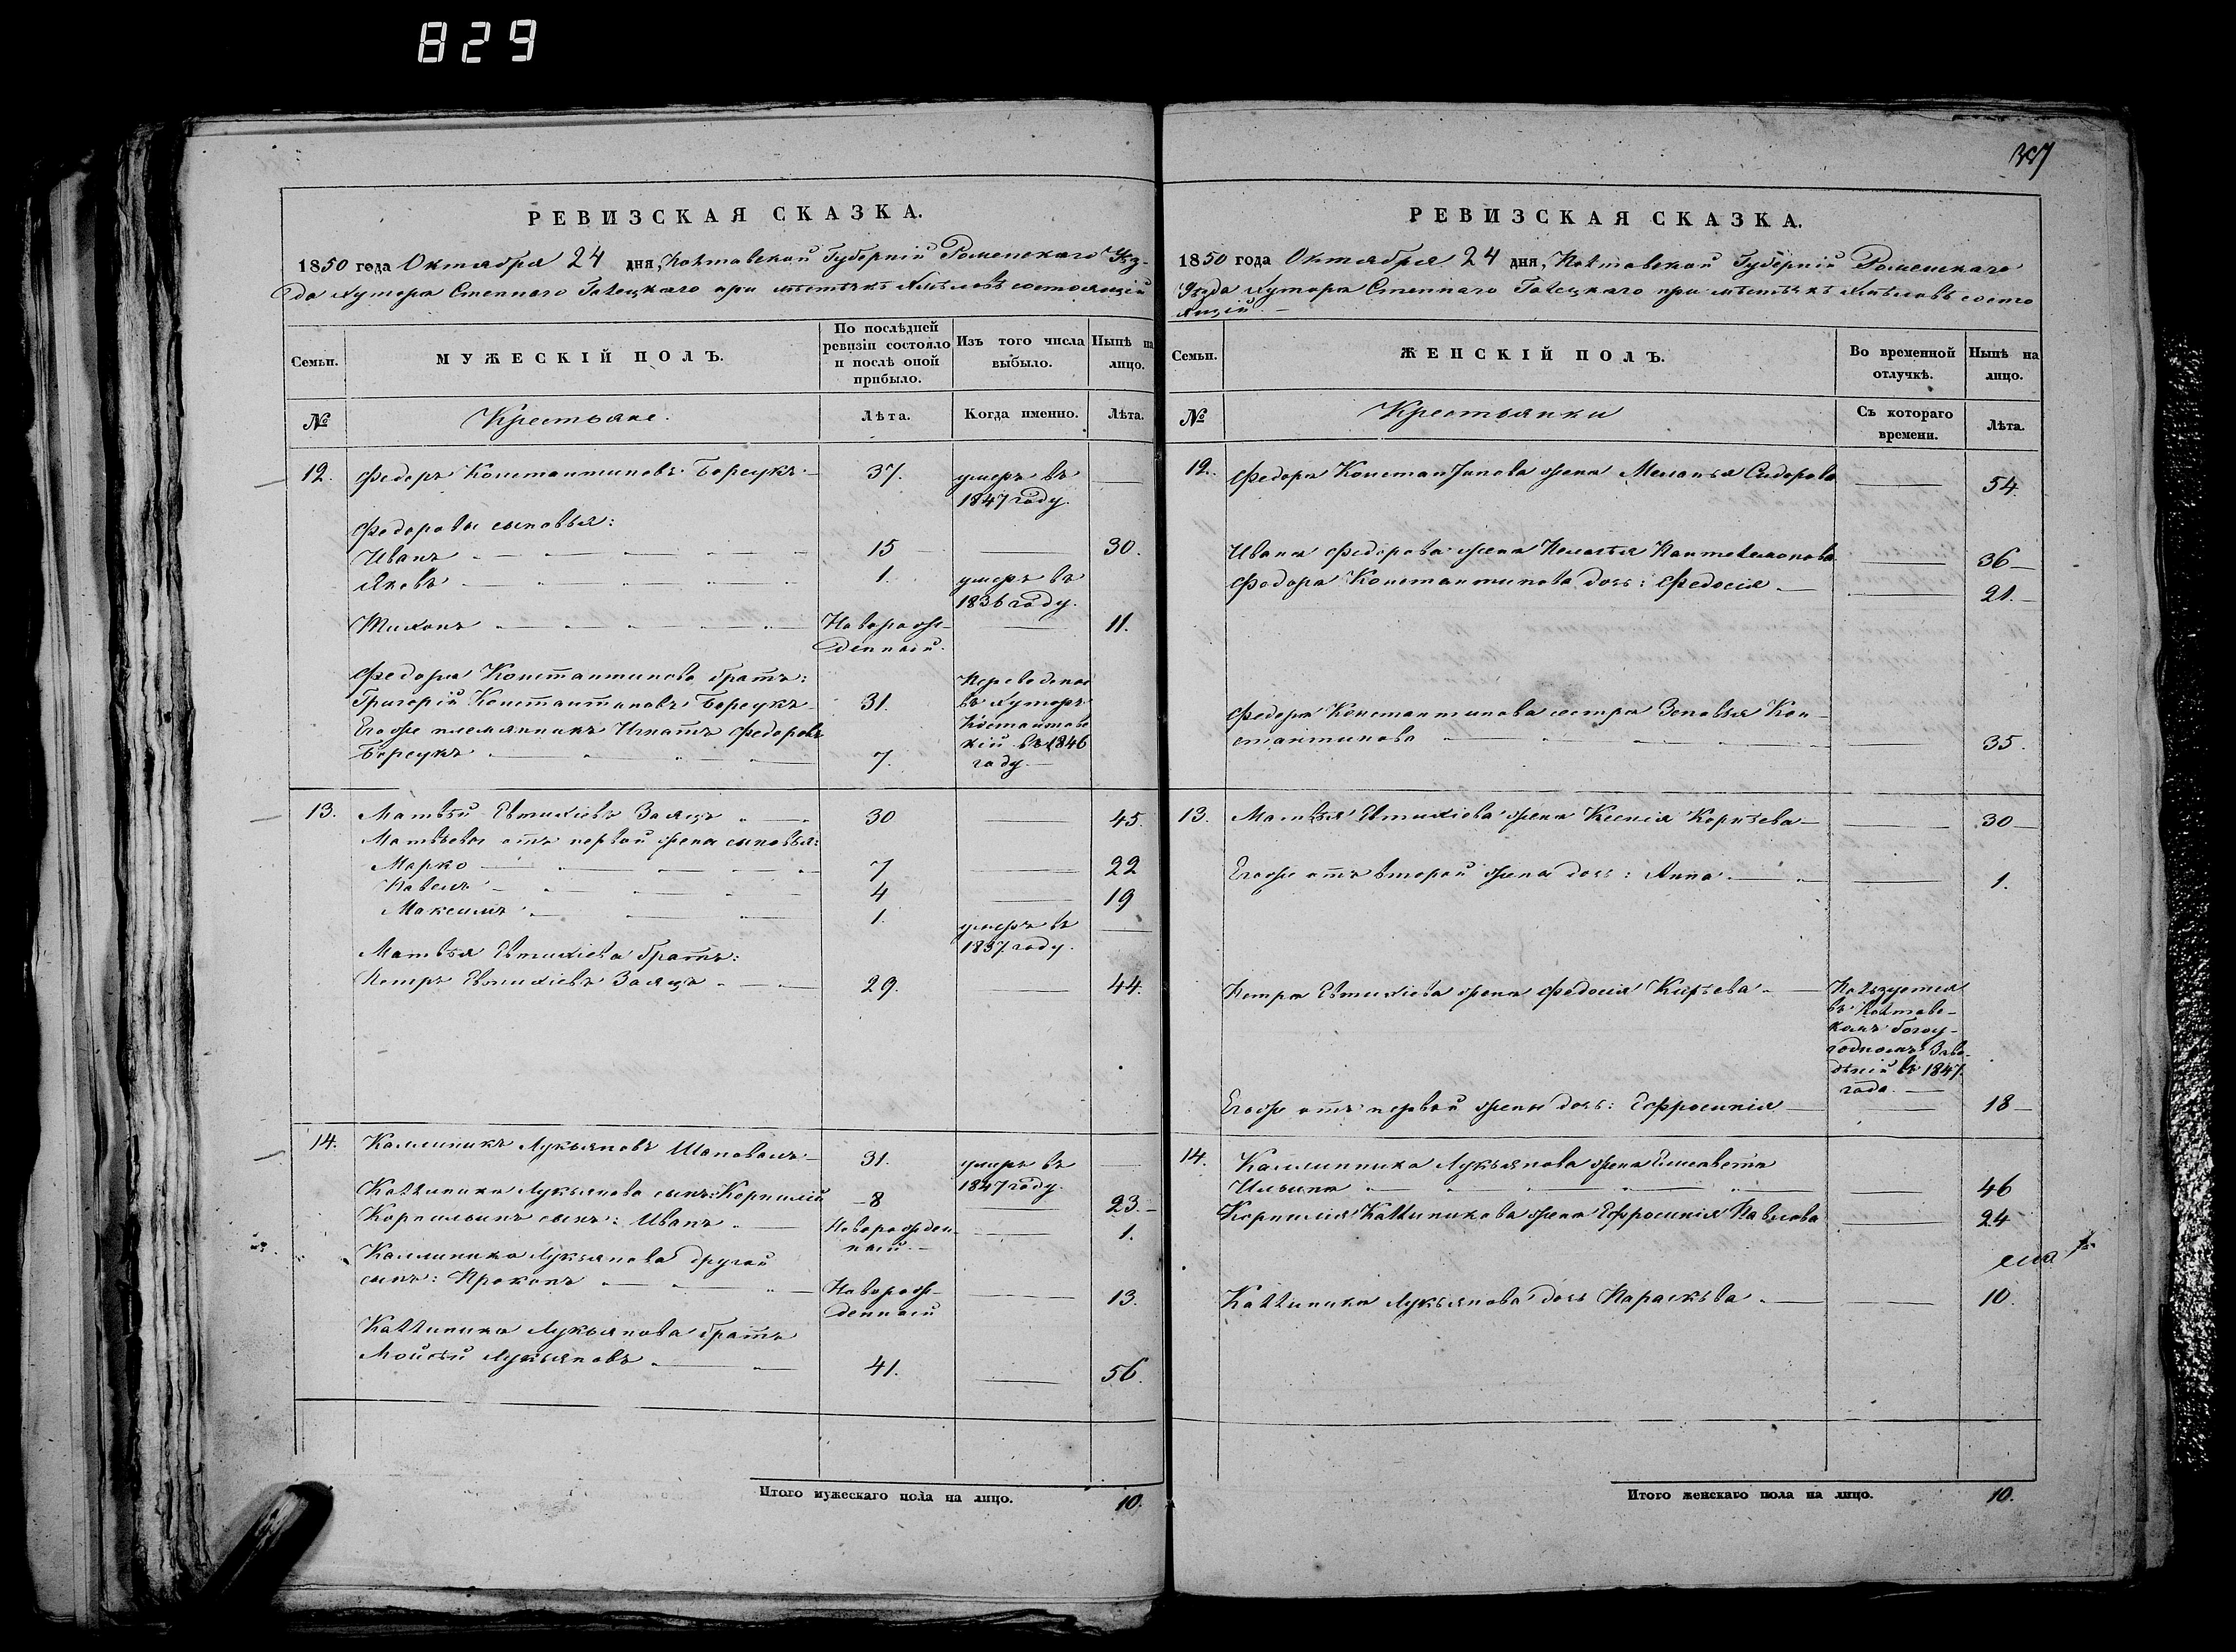 829
387
РЕВИЗСКАЯ СКАЗКА.
1850 года Октября 24 дня, Полтавской Губерній Роменскаго Уѣз-
да Хутора Степнаго Галецкаго при мѣстѣчкѣ Хмѣловѣ состоящій
Семьи.
МУЖЕСКІЙ ПОЛЪ.
По послѣдней ревизіи состояло и послѣ оной прибыло.
Изъ того числа выбыло.
Нынѣ на лицо.
№
Крестьяне.
Лѣта.
Когда именно.
Лѣта.
12. Федоръ Константиновъ Борсукъ 37. умеръ въ
1847 году.
Федоровы сыновья:
Иванъ 15 30.
Яковъ 1. умеръ въ
1836 году.
Тихонъ Новорож- 11.
денный.
Федора Константинова братъ: Переведены
Григорій Константиновъ Борсукъ 31. въ хуторъ
Егоже племянникъ Игнатъ Федоровъ
Борсукъ 7. кій въ 1846
году.
13. Матвѣй Евтихіевъ Заяцъ 30 45.
Матвѣевы отъ первой жены сыновья:
Марко 7 22
Павелъ 4 19
Максимъ 1. умеръ въ
1837 году.
Матвѣя Евтихіева братъ:
Петръ Евтихіевъ Заяцъ 29. 44.
14. Каллиникъ Лукьяновъ Шаповалъ 31. умеръ въ
1847 году.
Каллиника Лукьянова сынъ: Корнилій 8 23.
Корнильинъ сынъ: Иванъ Новорожден- 1.
ный.
Каллиника Лукьянова другой
сынъ: Прокопъ Новорож- 13.
денный
Каллиника Лукьянова братъ
Мойсѣй Лукьяновъ 41. 56.
Итого мужескаго пола на лицо. 10.
РЕВИЗСКАЯ СКАЗКА.
1850 года Октября 24 дня, Полтавской Губерній Роменскаго
Уѣзда Хутора Степнаго Галецкаго при мѣстѣчкѣ Хмѣловѣ состо
ящій
Семьи.
ЖЕНСКІЙ ПОЛЪ.
Во временной отлучкѣ.
Нынѣ на лицо.
№
Крестьянки
Съ котораго времени.
Лѣта.
12. Федора Константинова жена Меланья Сидорова 54.
Ивана Федорова жена Пелагѣя Пантелимонова 36
Федора Константинова дочь: Федосія 21.
Федора Константинова сестра Зеновья Кон-
стантинова 35.
13. Матвѣя Евтихіева жена Ксенія Корнѣева 30
Егоже отъ второй жены дочь: Анна 1.
Петра Евтихіева жена Федосія Кирѣева Пользуется
въ Полтавс-
комъ богоу-
годномъ Заве-
дѣніи въ 1847
года.
Егоже отъ первой жены дочь: Ефросинія 18
14. Каллинника Лукьянова жена Елисавета
Ильина 46
Корнилія Каллиникова жена Ефросинія Павлова 24
Каллиника Лукьянова дочь Параскѣва 10.
Итого женскаго пола на лицо. 10.